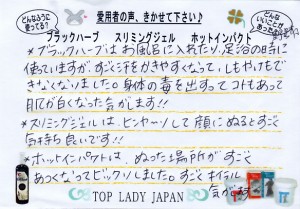 愛用者の声、きかせて下さい♪
どんなふうに使ってる?
どんないいことがあった?
ブラックハーブ スリミングジェル ホットインパクト
*ブラックハーブは お風呂に入れたり、足浴の時に
使っていますが、すごく汗をかきやすくなって、しもやけもで
きなくなりました♪身体の毒を出すってコトもあって
肌が白くなった気がます!!
*スリミングジェルは、ヒンヤ〜ソして顔にぬるとすごく
気持ち良いです!!
*ホットインパクトは、ぬった場所がすごく
あつくなってビックリしました。すごく
気が
TOP LADY JAPAN